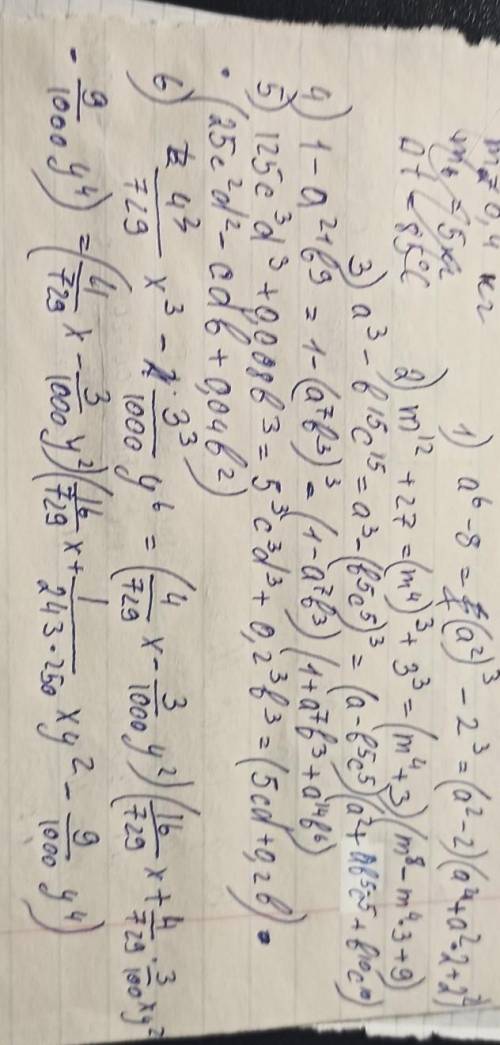 m = 0,4 кг
1) a⁶ - 8 = (a²)³ - 2³ = (a² - 2)(a⁴ + a²·2 + 2²)
2) m¹² + 27 = (m⁴)³ + 3³ = (m⁴ + 3)(m⁸ - m⁴·3 + 9)
3) a³ - b¹⁵c¹⁵ = a³ - (b⁵c⁵)³ = (a - b⁵c⁵)(a² + ab⁵c⁵ + b¹⁰c¹⁰)
4) 1 - a²¹b⁹ = 1 - (a⁷b³)³ = (1 - a⁷b³)(1 + a⁷b³ + a¹⁴b⁶)
5) 125c³d³ + 0,008b³ = 5³c³d³ + 0,2³b³ = (5cd + 0,2b) ·
· (25c²d² - cdb + 0,04b²)
6) 4³/729 x³ - 3³/1000 y⁶ = (4/729 x - 3/1000 y²)(16/729 x + 4/729 · 3/100 xy²
- 9/1000 y⁴) = (4/729 x - 3/1000 y²)(16/729 x + 1/243·250 xy² - 9/1000 y⁴)